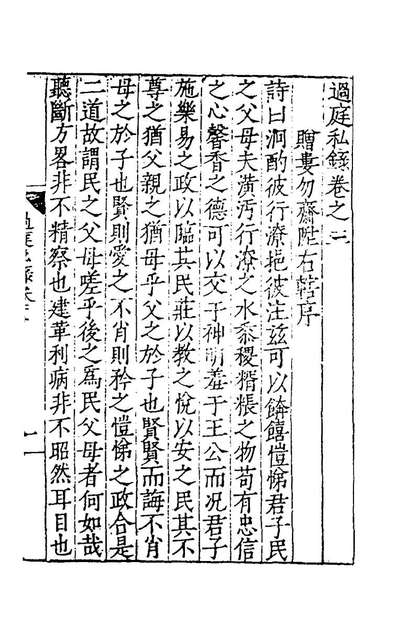 過庭私錄卷之二
贈婁勿齋陞右轄序
詩曰泂酌彼行潦挹彼注玆可以餴饎愷悌君子民
之父母夫潢汚行潦之水黍稷糈粻之物苟有忠信
之心馨香之德可以交于神明羞于王公而況君子
施樂易之政以臨其民莊以教之悅以安之民其不
尊之猶父親之猶母乎父之於子也賢賢而誨不肖
母之於子也賢則愛之不肖則矜之愷悌之政合是
二道故謂民之父母嗟乎後之爲民父母者何如哉
聽斷方畧非不精察也建革利病非不昭然耳目也